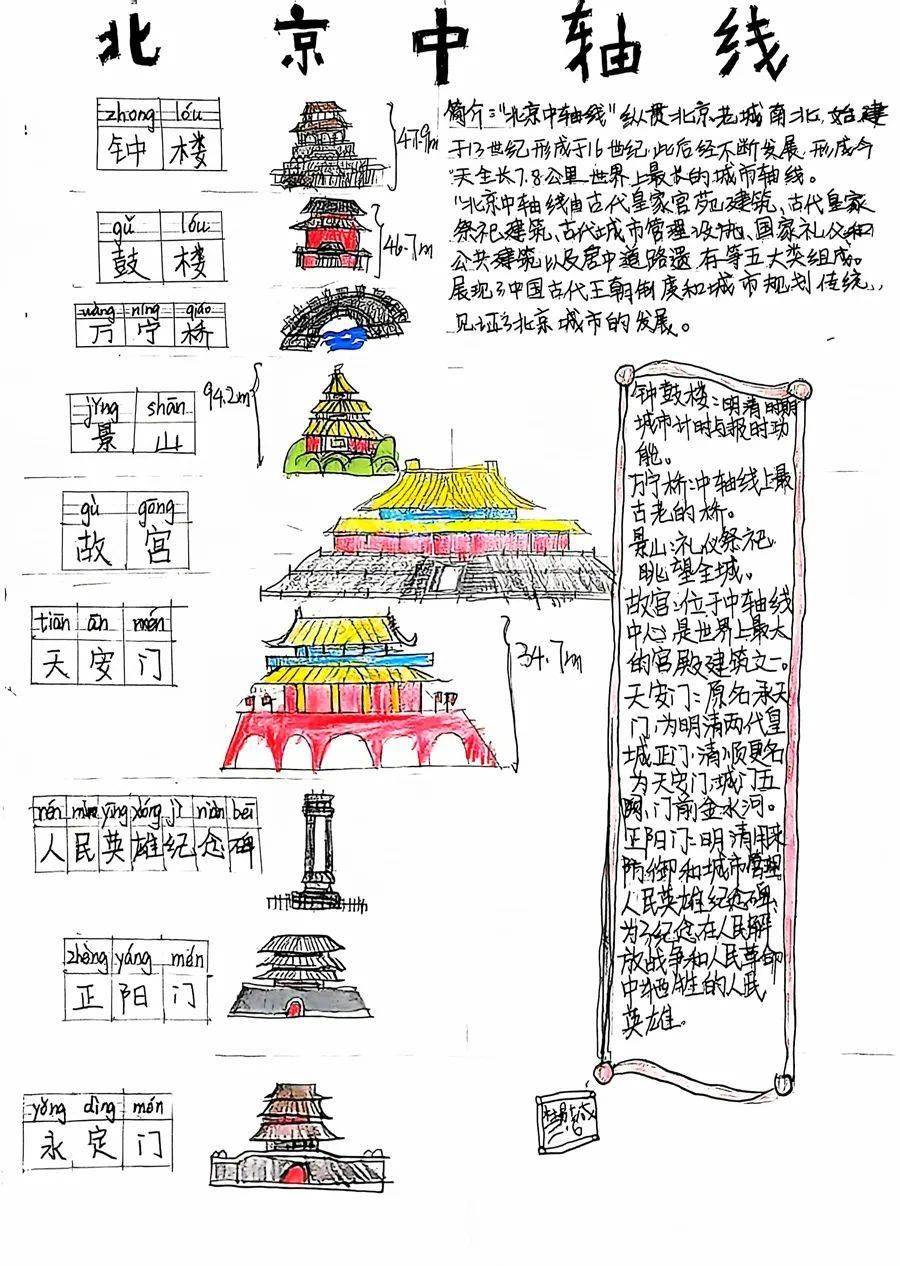 北京中轴线
zhong lóu
钟楼
47.9m
简介："北京中轴线"纵贯北京老城南北，始建
于13世纪，形成于16世纪，此后经不断发展，形成今
天全长7.8公里世界上最长的城市轴线。
"北京中轴线由古代皇家宫苑建筑、古代皇家
祭祀建筑、古代城市管理设施、国家礼仪和
公共建筑以及居中道路遗存等五大类组成。
展现了中国古代王朝制度和城市规划传统，
见证了北京城市的发展。
gǔ lóu
鼓楼
46.7m
wàng níng qiáo
万宁桥
jǐng shān
景山
94.2m
gù gōng
故宫
tiān ān mén
天安门
34.7m
rén mín yīng xióng jì niàn bēi
人民英雄纪念碑
zhèng yáng mén
正阳门
yǒng dìng mén
永定门
钟鼓楼：明清时期
城市计时与报时功
能。
万宁桥：中轴线上最
古老的桥。
景山：礼仪祭祀
眺望全城。
故宫：位于中轴线
中心是世界上最大
的宫殿建筑之一。
天安门：原名承天
门，为明清两代皇
城正门，清顺更名
为天安门，城门五
阙，门前金水河。
正阳门：明清用来
防御和城市管理
人民英雄纪念碑：
为了纪念在人民解
放战争和人民革命
中牺牲的人民
英雄。